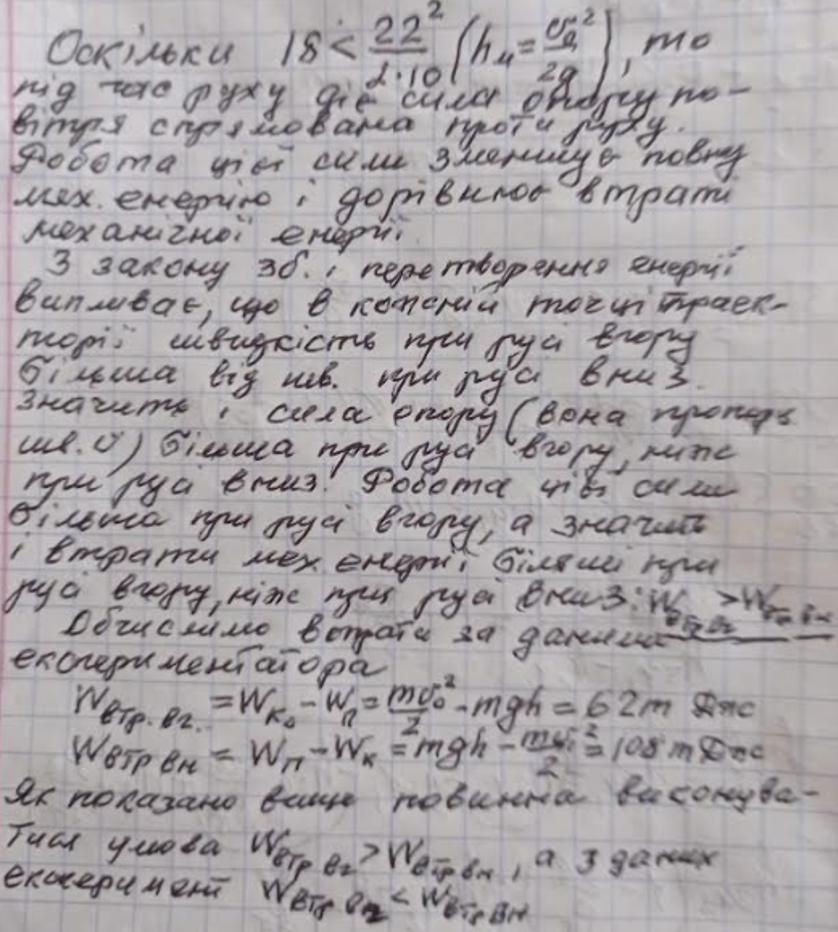 Оскільки 18 < 22²/2·10 (hм = v₀²/2g), то
під час руху діє сила опору по-
вітря спрямована проти руху.
Робота цієї сили зменшує повну
мех. енергію і дорівнює втраті
механічної енергії.
З закону зб. і перетворення енергії
випливає, що в кожній точці траєк-
торії швидкість при русі вгору
більша від шв. при русі вниз.
Значить і сила опору (вона пропорц
шв. v) більша при русі вгору, ніж
при русі вниз. Робота цієї сили
більша при русі вгору, а значить
і втрати мех. енергії більші при
русі вгору, ніж при русі вниз: Wвтр вг > Wвтр вн
Обчислимо втрати за даними
експериментатора
Wвтр. вг. = Wк₀ - Wп = mv₀²/2 - mgh = 62m Дж
Wвтр вн = Wп - Wк = mgh - mv₁²/2 = 108m Дж
Як показано вище повинна виконува-
тися умова Wвтр вг > Wвтр вн, а з даних
експеримент Wвтр вг < Wвтр вн